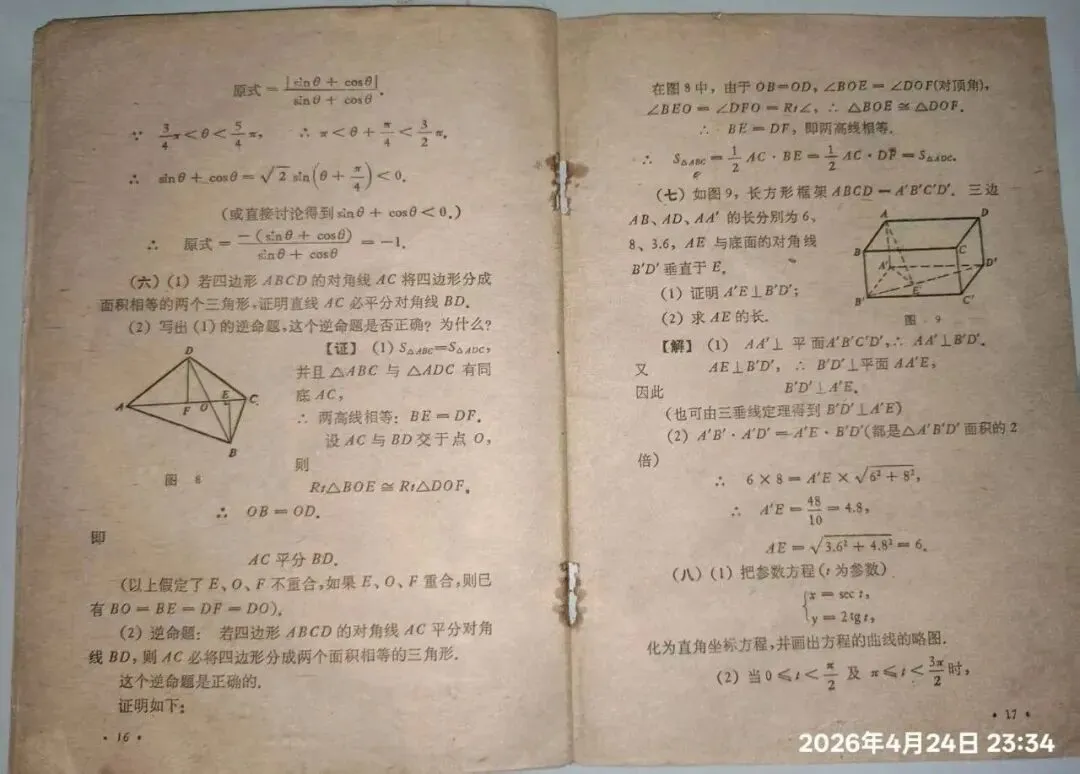 原式 = |sinθ + cosθ| / (sinθ + cosθ).
∵ 3/4 π < θ < 5/4 π, ∴ π < θ + π/4 < 3/2 π.
∴ sinθ + cosθ = √2 sin(θ + π/4) < 0.
(或直接讨论得到 sinθ + cosθ < 0.)
∴ 原式 = -(sinθ + cosθ) / (sinθ + cosθ) = -1.
(六) (1) 若四边形 ABCD 的对角线 AC 将四边形分成
面积相等的两个三角形,证明直线 AC 必平分对角线 BD.
(2) 写出 (1) 的逆命题,这个逆命题是否正确? 为什么?
D
A
F
O
E
C
B
图 8
【证】 (1) S△ABC=S△ADC,
并且 △ABC 与 △ADC 有同
底 AC,
∴ 两高线相等: BE = DF.
设 AC 与 BD 交于点 O,
则
Rt△BOE ≅ Rt△DOF,
∴ OB = OD.
即
AC 平分 BD.
(以上假定了 E、O、F 不重合,如果 E、O、F 重合,则已
有 BO = BE = DF = DO).
(2) 逆命题: 若四边形 ABCD 的对角线 AC 平分对角
线 BD,则 AC 必将四边形分成两个面积相等的三角形.
这个逆命题是正确的.
证明如下:
· 16 ·
在图 8 中, 由于 OB=OD, ∠BOE = ∠DOF(对顶角),
∠BEO = ∠DFO = Rt∠, ∴ △BOE ≅ △DOF.
∴ BE = DF, 即两高线相等.
∴ S△ABC = 1/2 AC · BE = 1/2 AC · DF = S△ADC.
(七) 如图 9, 长方形框架 ABCD — A′B′C′D′. 三边
AB、AD、AA′ 的长分别为 6、
8、3.6, AE 与底面的对角线
B′D′ 垂直于 E.
(1) 证明 A′E⊥B′D′;
(2) 求 AE 的长.
A
D
B
C
A′
D′
E
B′
C′
图 9
【解】 (1) AA′⊥ 平面A′B′C′D′, ∴ AA′⊥B′D′.
又 AE⊥B′D′, ∴ B′D′⊥平面 AA′E,
因此 B′D′⊥A′E.
(也可由三垂线定理得到 B′D′⊥A′E)
(2) A′B′ · A′D′ = A′E · B′D′(都是△A′B′D′ 面积的 2
倍)
∴ 6 × 8 = A′E × √(6² + 8²),
∴ A′E = 48/10 = 4.8,
AE = √(3.6² + 4.8²) = 6.
(八) (1) 把参数方程 (t 为参数)
{ x = sec t,
y = 2 tg t,
化为直角坐标方程,并画出方程的曲线的略图.
(2) 当 0 ≤ t < π/2 及 π ≤ t < 3π/2 时,
· 17 ·
2026年4月24日 23:34